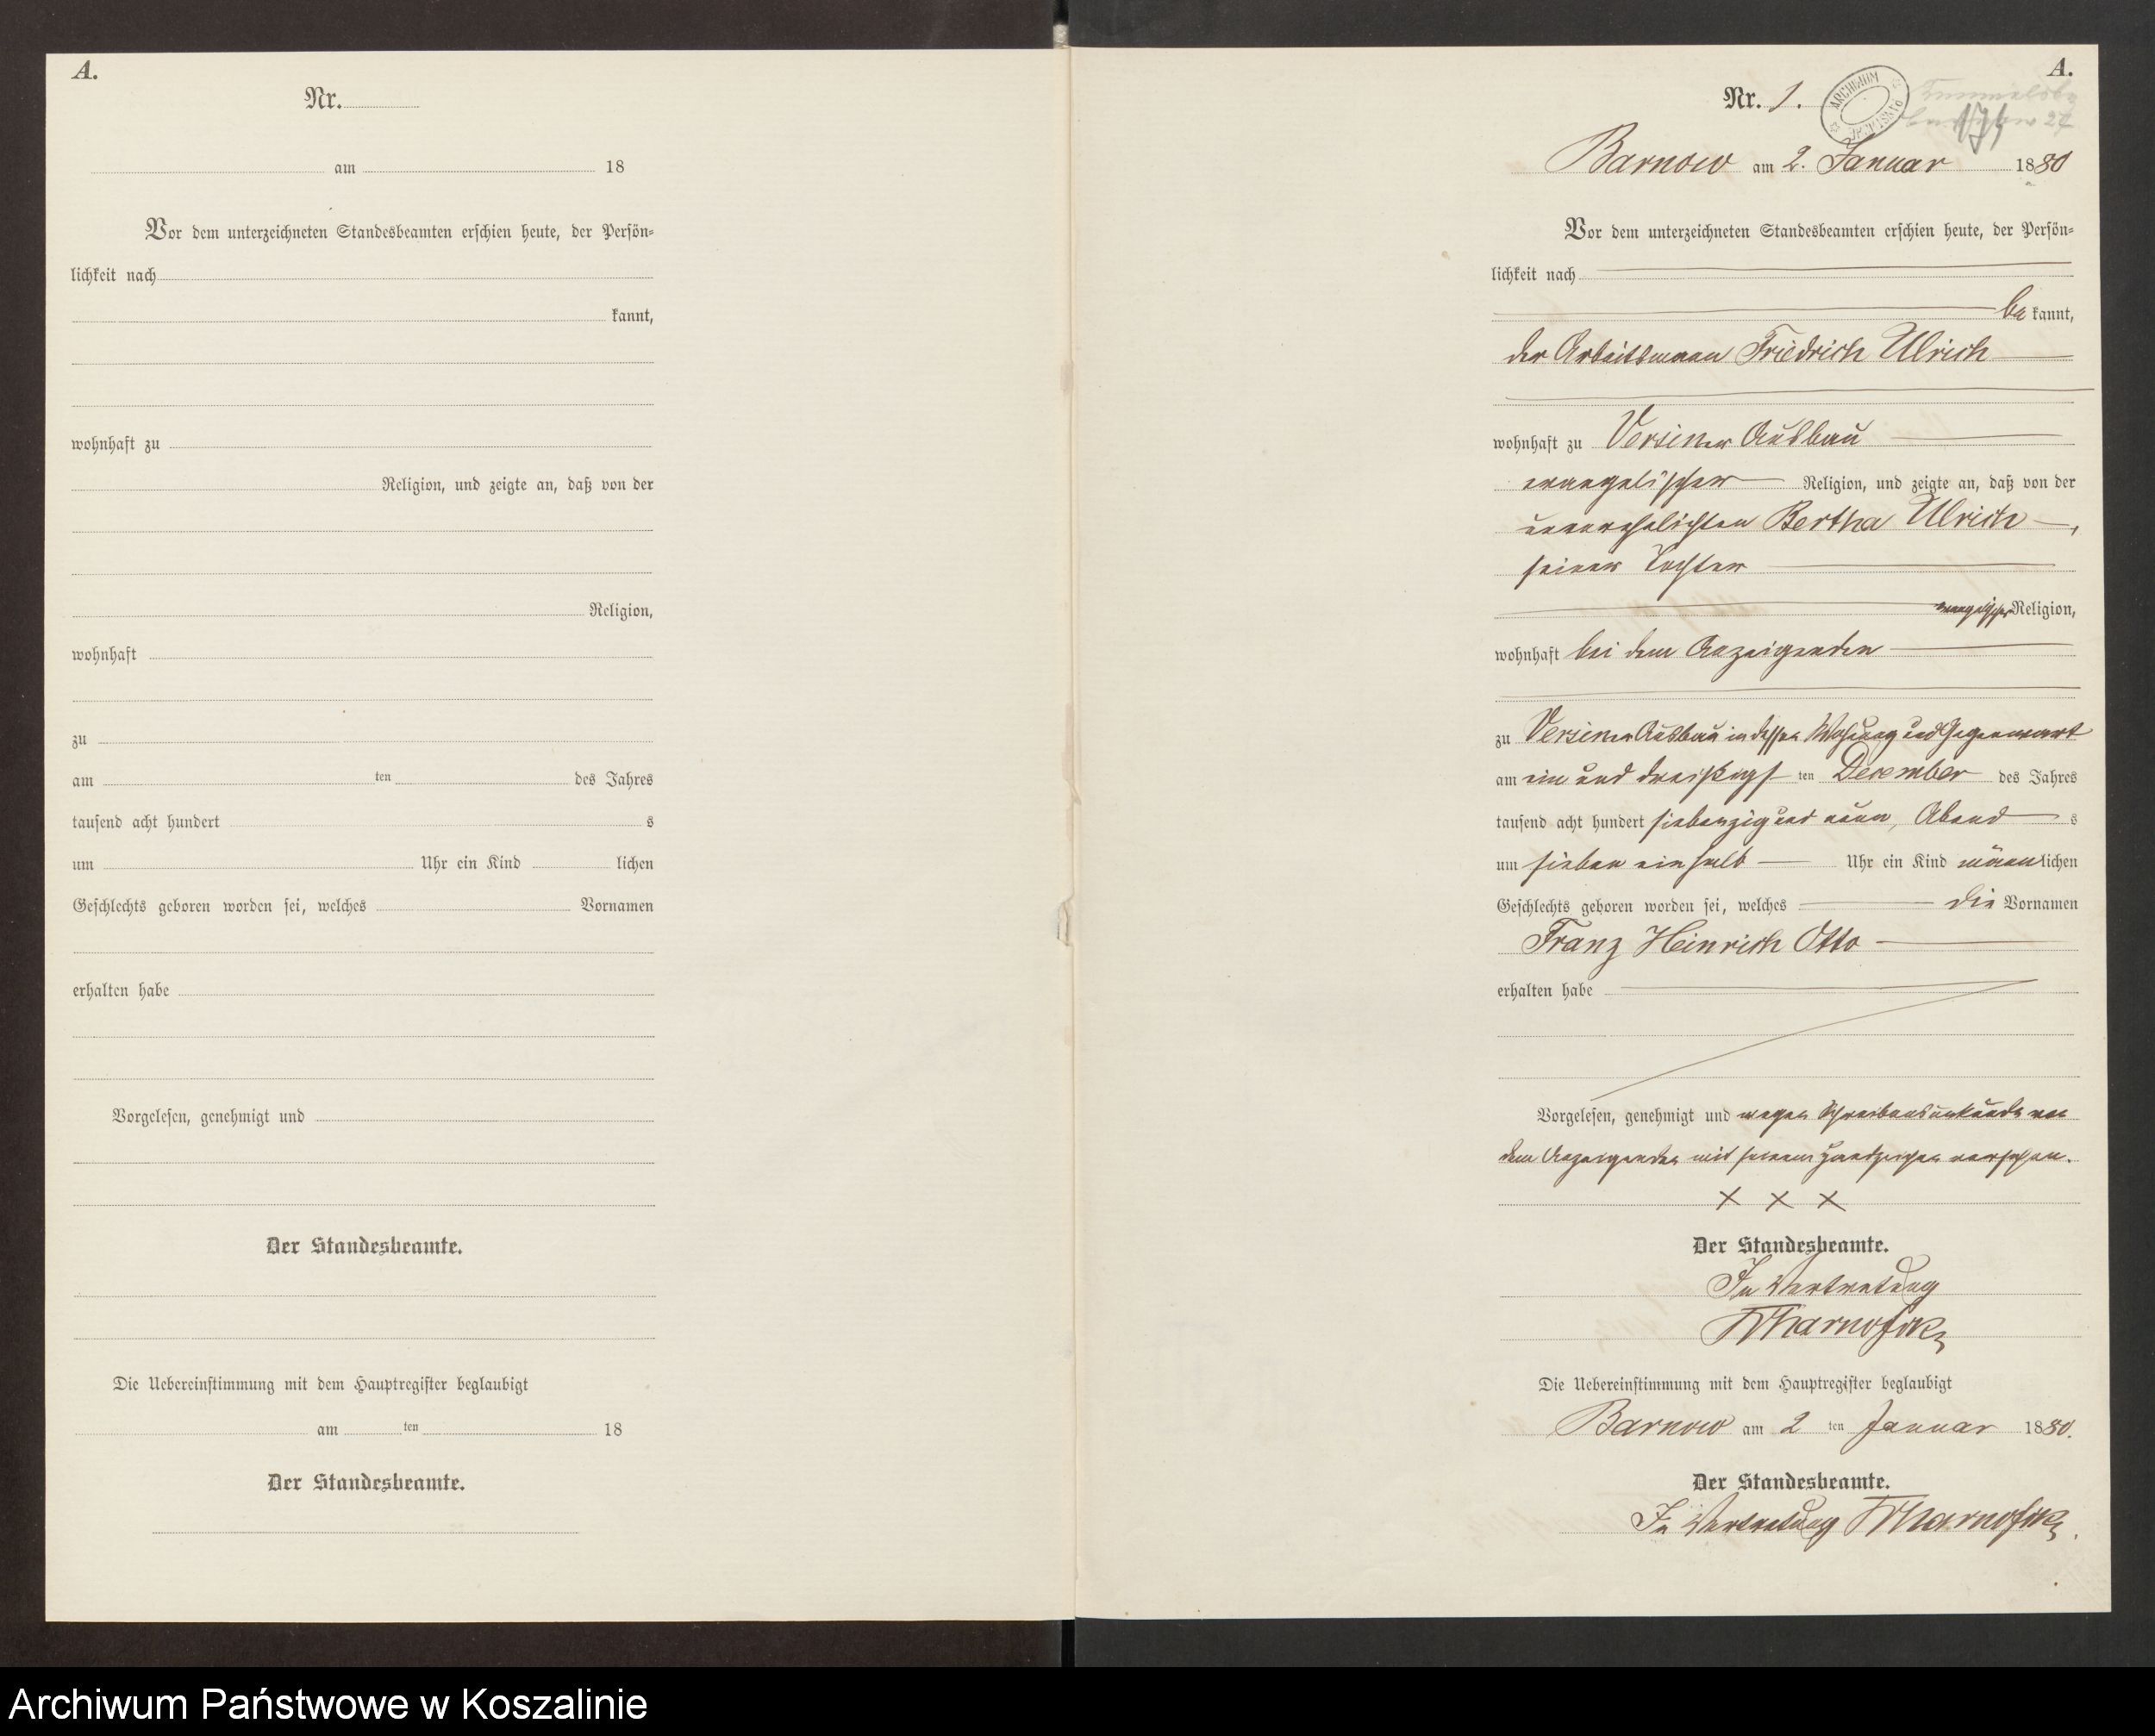 A.
Nr.
am 18
Vor dem unterzeichneten Standesbeamten erschien heute, der Persön-
lichkeit nach
kannt,
wohnhaft zu
Religion, und zeigte an, daß von der
Religion,
wohnhaft
zu
am ten des Jahres
tausend acht hundert s
um Uhr ein Kind lichen
Geschlechts geboren worden sei, welches Vornamen
erhalten habe
Vorgelesen, genehmigt und
Der Standesbeamte.
Die Uebereinstimmung mit dem Hauptregister beglaubigt
am ten 18
Der Standesbeamte.
A.
Nr. 1.
ARCHIWUM
Barnow am 2. Januar 1880
Vor dem unterzeichneten Standesbeamten erschien heute, der Persön-
lichkeit nach
be kannt,
der Arbeitsmann Friedrich Ulrich
wohnhaft zu Versiner Ausbau
evangelischer Religion, und zeigte an, daß von der
unverehelichten Bertha Ulrich,
seiner Tochter
evangelischer Religion,
wohnhaft bei dem Anzeigenden
zu Versiner Ausbau in dessen Wohnung und Gegenwart
am ein und dreißigsten December des Jahres
tausend acht hundert siebenzig und neun, Abend s
um sieben ein halb Uhr ein Kind männlichen
Geschlechts geboren worden sei, welches die Vornamen
Franz Heinrich Otto
erhalten habe
Vorgelesen, genehmigt und wegen Schreibensunkunde von
dem Anzeigenden mit seinem Handzeichen versehen.
x x x
Der Standesbeamte.
In Vertretung
Die Uebereinstimmung mit dem Hauptregister beglaubigt
Barnow am 2 ten Januar 1880.
Der Standesbeamte.
In Vertretung
Archiwum Państwowe w Koszalinie